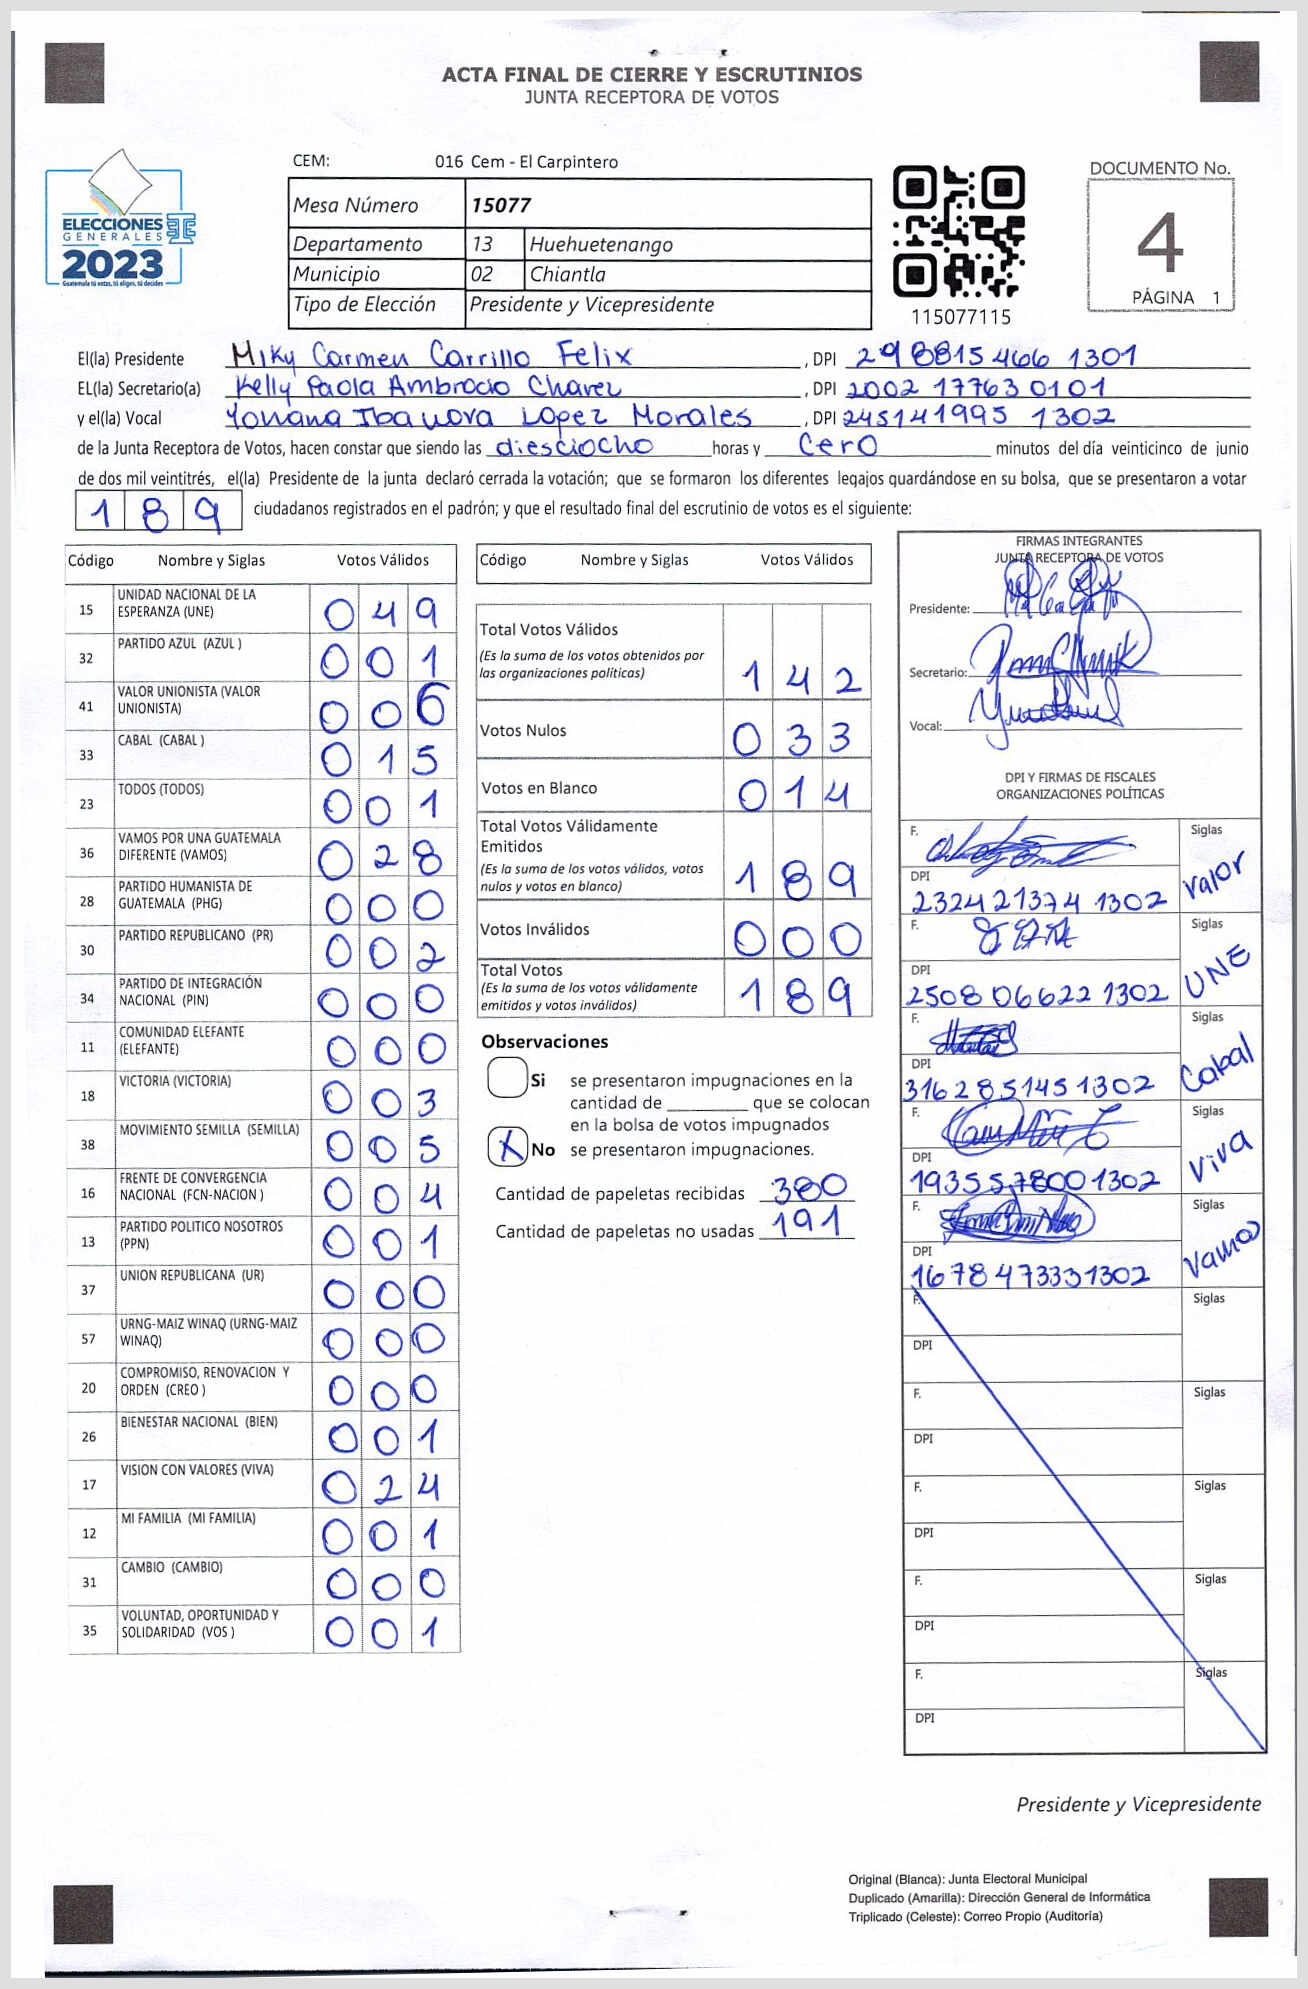 ACTA FINAL DE CIERRE Y ESCRUTINIOS
JUNTA RECEPTORA DE VOTOS
ELECCIONES
GENERALES
2023
Guatemala tú votas, tú eliges, tú decides
CEM: 016 Cem - El Carpintero
Mesa Número 15077
Departamento 13 Huehuetenango
Municipio 02 Chiantla
Tipo de Elección Presidente y Vicepresidente
115077115
DOCUMENTO No.
4
PÁGINA 1
El(la) Presidente Miky Carmen Carrillo Felix, DPI 298815466 1301
EL(la) Secretario(a) Kelly Paola Ambrocio Chavez, DPI 2002 17763 0101
y el(la) Vocal Lopez Morales, DPI 245141995 1302
de la Junta Receptora de Votos, hacen constar que siendo las diesciocho horas y cero minutos del día veinticinco de junio
de dos mil veintitrés, el(la) Presidente de la junta declaró cerrada la votación; que se formaron los diferentes legajos quardándose en su bolsa, que se presentaron a votar
189 ciudadanos registrados en el padrón; y que el resultado final del escrutinio de votos es el siguiente:
Código Nombre y Siglas Votos Válidos
15 UNIDAD NACIONAL DE LA ESPERANZA (UNE) 049
32 PARTIDO AZUL (AZUL ) 001
41 VALOR UNIONISTA (VALOR UNIONISTA) 006
33 CABAL (CABAL ) 015
23 TODOS (TODOS) 001
36 VAMOS POR UNA GUATEMALA DIFERENTE (VAMOS) 028
28 PARTIDO HUMANISTA DE GUATEMALA (PHG) 000
30 PARTIDO REPUBLICANO (PR) 002
34 PARTIDO DE INTEGRACIÓN NACIONAL (PIN) 000
11 COMUNIDAD ELEFANTE (ELEFANTE) 000
18 VICTORIA (VICTORIA) 003
38 MOVIMIENTO SEMILLA (SEMILLA) 005
16 FRENTE DE CONVERGENCIA NACIONAL (FCN-NACION ) 004
13 PARTIDO POLITICO NOSOTROS (PPN) 001
37 UNION REPUBLICANA (UR) 000
57 URNG-MAIZ WINAQ (URNG-MAIZ WINAQ) 000
20 COMPROMISO, RENOVACION Y ORDEN (CREO ) 000
26 BIENESTAR NACIONAL (BIEN) 001
17 VISION CON VALORES (VIVA) 024
12 MI FAMILIA (MI FAMILIA) 001
31 CAMBIO (CAMBIO) 000
35 VOLUNTAD, OPORTUNIDAD Y SOLIDARIDAD (VOS ) 001
Código Nombre y Siglas Votos Válidos
Total Votos Válidos
(Es la suma de los votos obtenidos por
las organizaciones políticas) 142
Votos Nulos 033
Votos en Blanco 014
Total Votos Válidamente
Emitidos
(Es la suma de los votos válidos, votos
nulos y votos en blanco) 189
Votos Inválidos 000
Total Votos
(Es la suma de los votos válidamente
emitidos y votos inválidos) 189
Observaciones
Si se presentaron impugnaciones en la
cantidad de ________ que se colocan
en la bolsa de votos impugnados
X No se presentaron impugnaciones.
Cantidad de papeletas recibidas 380
Cantidad de papeletas no usadas 191
FIRMAS INTEGRANTES
JUNTA RECEPTORA DE VOTOS
Presidente:
Secretario:
Vocal:
DPI Y FIRMAS DE FISCALES
ORGANIZACIONES POLÍTICAS
F. Siglas
DPI Valor
2324 21374 1302
F. Siglas
DPI UNE
2508 06622 1302
F. Siglas
DPI Cabal
3162851451302
F. Siglas
DPI Viva
1935578001302
F. Siglas
DPI Vamos
1678473331302
F. Siglas
DPI
F. Siglas
DPI
F. Siglas
DPI
F. Siglas
DPI
F. Siglas
DPI
Presidente y Vicepresidente
Original (Blanca): Junta Electoral Municipal
Duplicado (Amarilla): Dirección General de Informática
Triplicado (Celeste): Correo Propio (Auditoría)